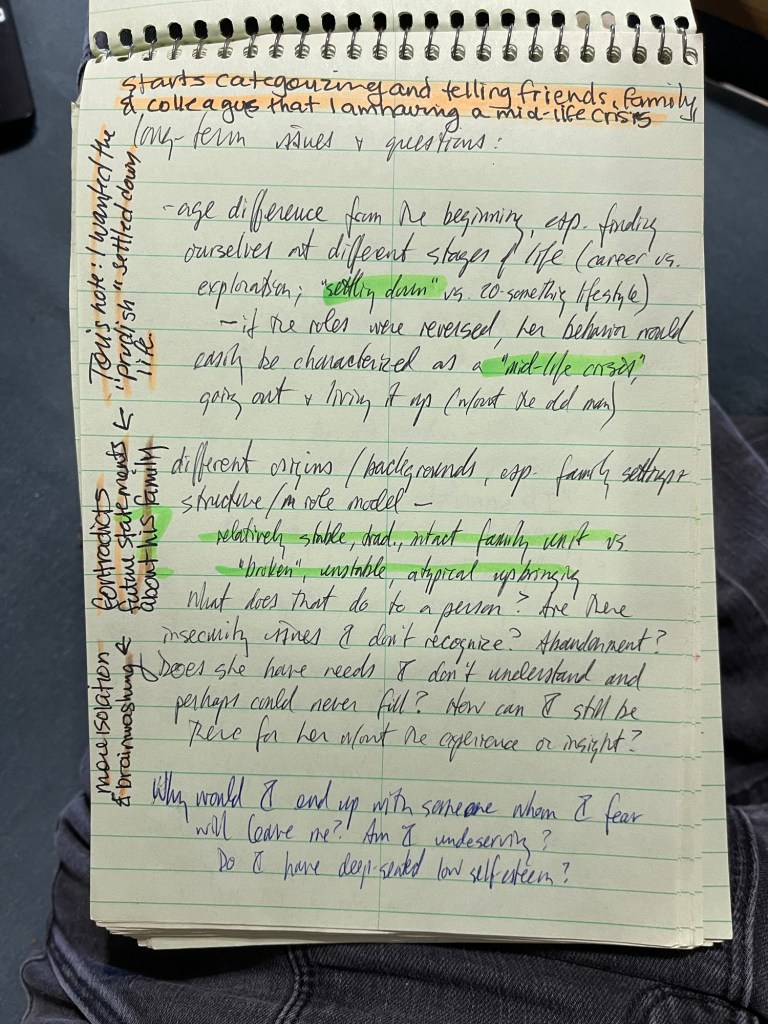 starts categorizing and telling friends, family,
& colleagus that I am having a mid-life crisis
long-term issues & questions:
-age difference from the beginning, esp. finding
ourselves at different stages of life (career vs.
exploration; "settling down" vs. 20-something lifestyle)
-if the roles were reversed, her behavior would
easily be characterized as a "mid-life crisis",
going out & living it up (w/out the old man)
different origins/backgrounds, esp. family settings +
structure/m role model -
relatively stable, trad., intact family unit vs
"broken", unstable, atypical upbringing
What does that do to a person? Are there
insecurity issues I don't recognize? Abandonment?
Does she have needs I don't understand and
perhaps could never fill? How can I still be
there for her w/out the experience or insight?
Why would I end up with someone whom I fear
will leave me? Am I undeserving?
Do I have deep-seated low self-esteem?
note: I wanted the
"prudish" settled down
life.
contradicts
future statements
about his family
more isolation
& brainwashing